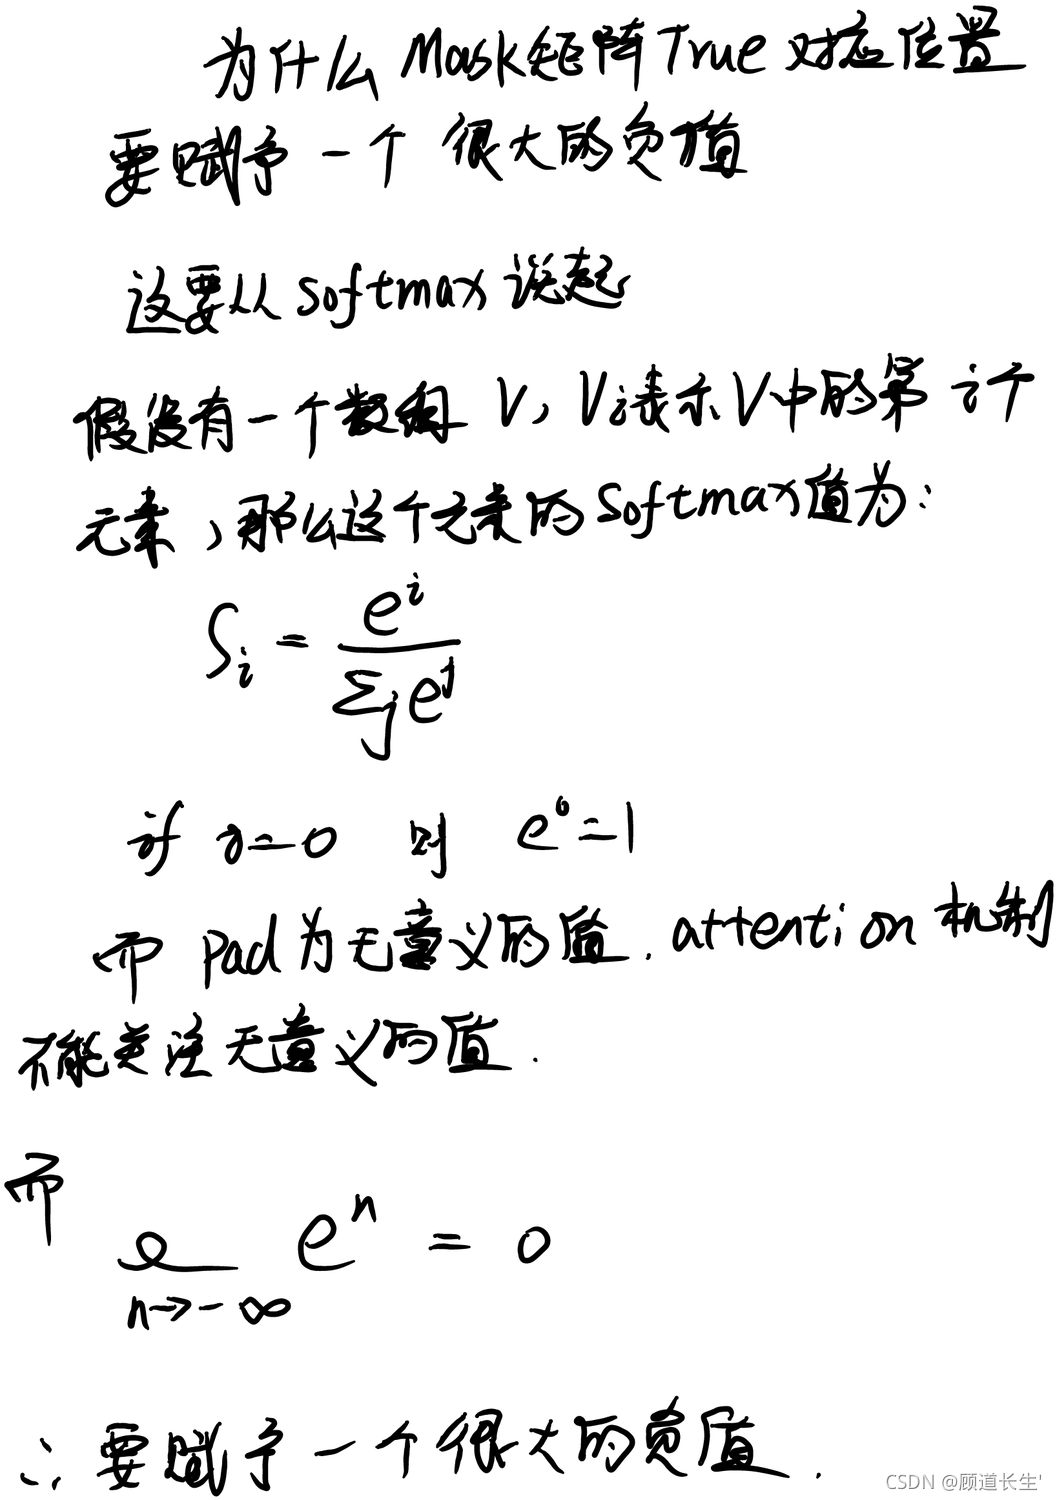 为什么 Mask矩阵True 对应位置
要赋予一个 很大的负值
这要从 softmax 说起
假设有一个数组 V, Vi表示V中的第 i个
元素,那么这个元素的Softmax值为:
S_i = e^i / Σ_j e^j
if i=0 则 e^0=1
而 Pad为无意义的值. attention 机制
不能关注无意义的值.
而
e^n = 0
n→-∞
∴ 要赋予一个很大的负值.
CSDN @顾道长生'